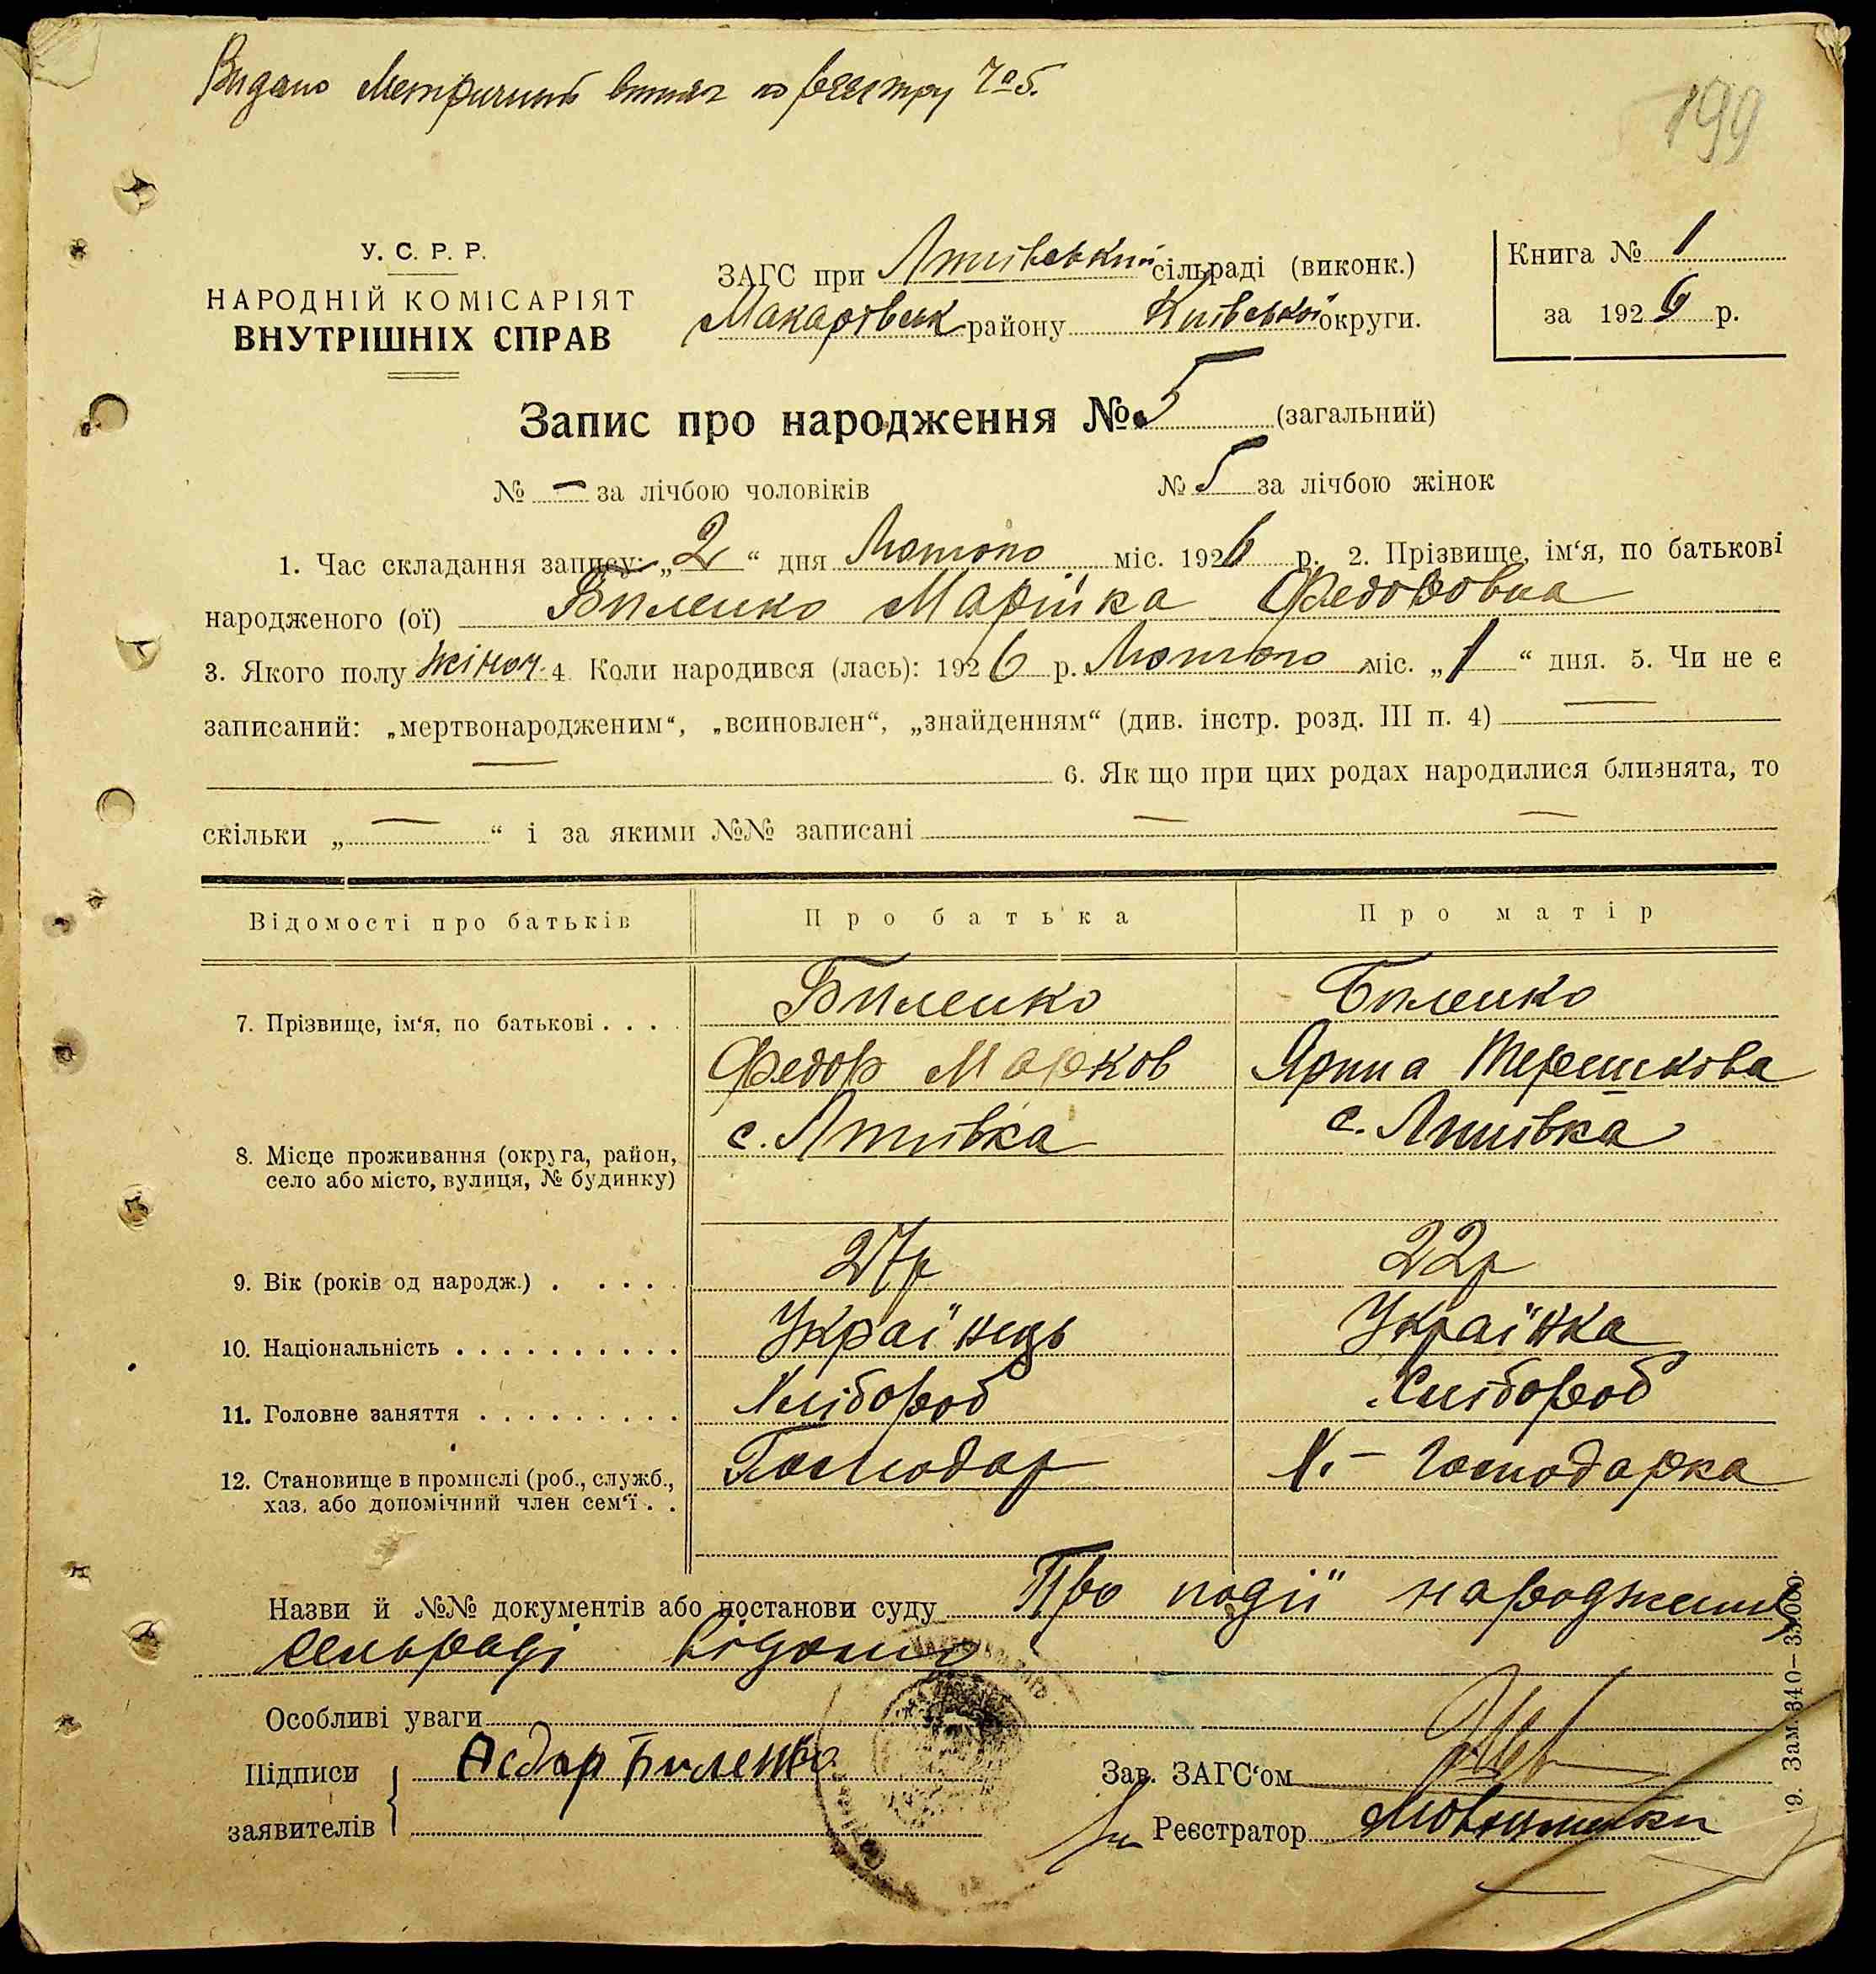 Видано Метричний витяг по реєстру
199
У. С. Р. Р.
НАРОДНІЙ КОМІСАРІЯТ
ВНУТРІШНІХ СПРАВ
ЗАГС при сільраді (виконк.)
Макарівськ району Київської округи.
Книга № 1
за 1926 р.
Запис про народження № 5 (загальний)
№ — за лічбою чоловіків № 5 за лічбою жінок
1. Час складання запису: „2“ дня Лютого міс. 1926 р. 2. Прізвище, ім‘я, по батькові
народженого (ої) Биленко Марійка Федоровна
3. Якого полу жіноч. 4 Коли народився (лась): 1926 р. Лютого міс. „1“ дня. 5. Чи не є
записаний: „мертвонародженим“, „всиновлен“, „знайденням“ (див. інстр. розд. III п. 4) —
— 6. Як що при цих родах народилися близнята, то
скільки „—“ і за якими №№ записані — —
Відомості про батьків Про батька Про матір
7. Прізвище, ім‘я, по батькові . . . . Биленко Биленко
Федор Марков Ярина Терешкова
8. Місце проживання (округа, район, с. Липівка с. Липівка
село або місто, вулиця, № будинку)
9. Вік (років од народж.) . . . . . 27р 22р
10. Національність . . . . . . . . . . Українець Українка
11. Головне заняття . . . . . . . . . Хлібороб Хлібороб
12. Становище в промислі (роб., служб., Господар Х.- Господарка
хаз. або допомічний член сем‘ї . .
Назви й №№ документів або постанови суду Про події народження
сельраді відомо
Особливі уваги
Підписи Биленко
заявителів
Зав. ЗАГС‘ом
Реєстратор
Зам. 340—35000.